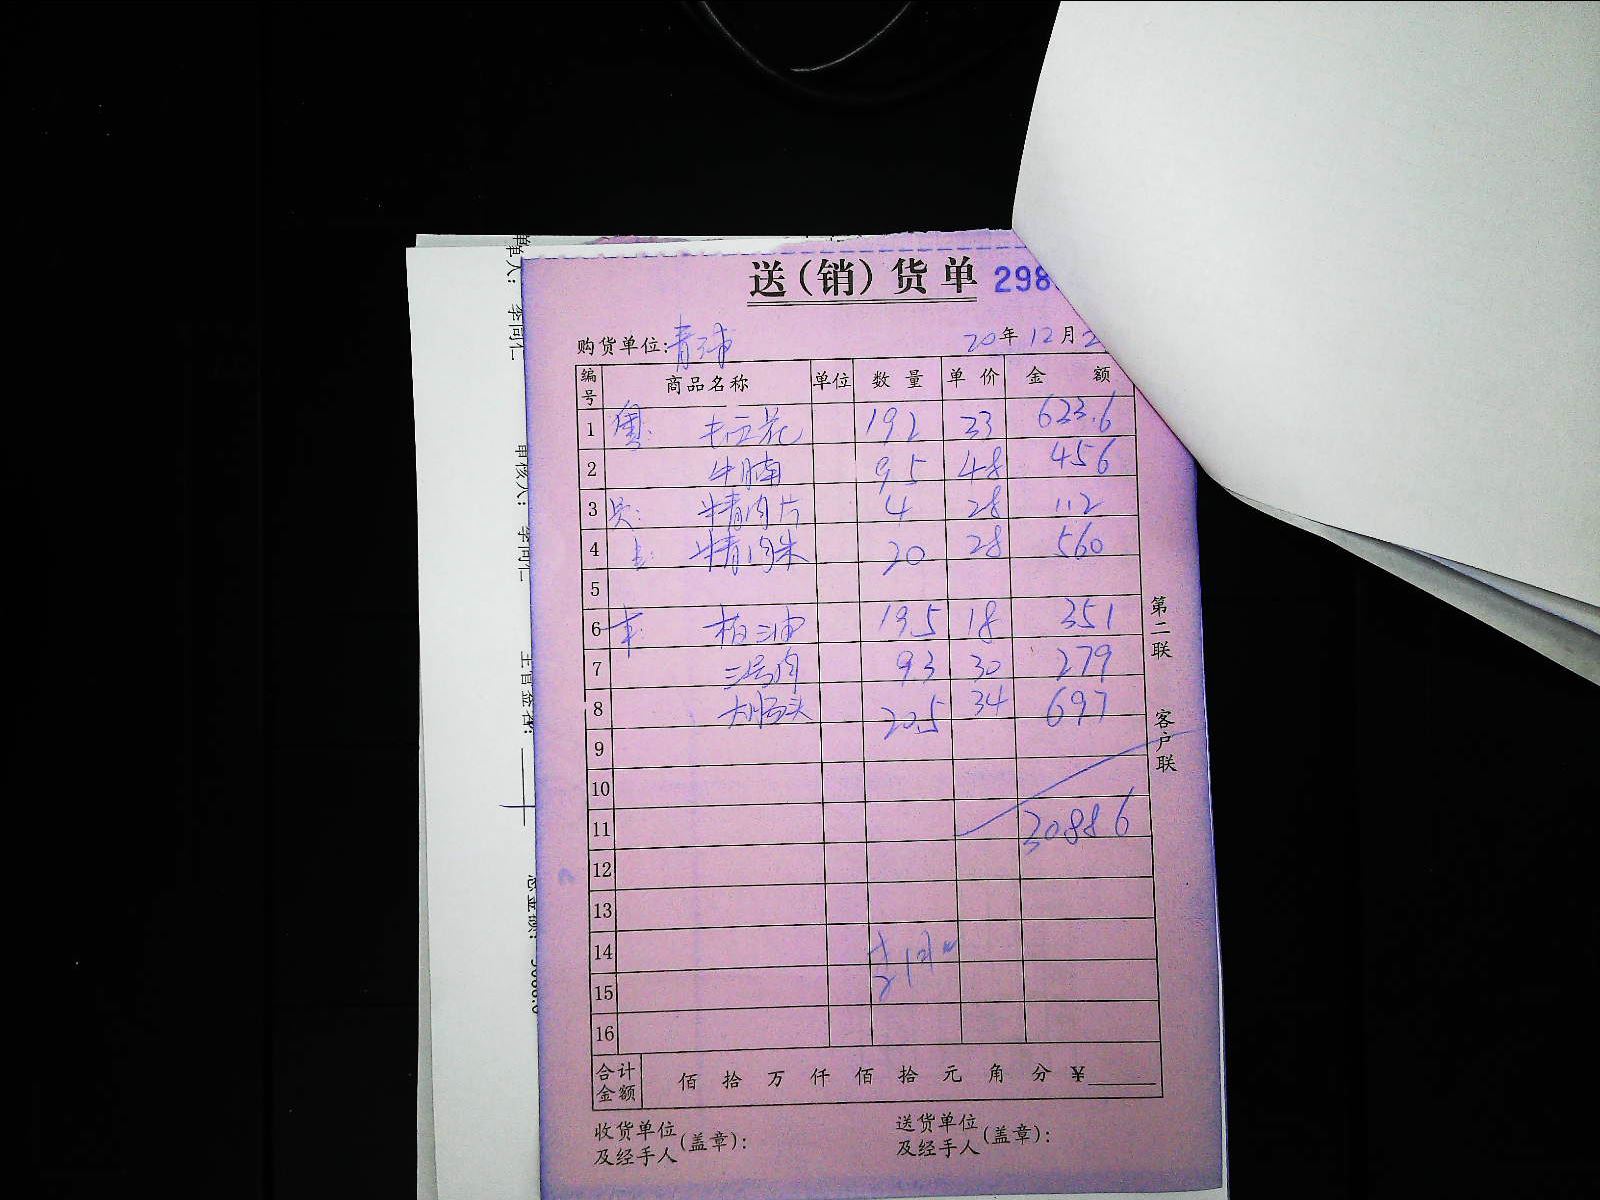 送(销)货单 298
购货单位: 20年12月2
编号 商品名称 单位 数量 单价 金额
1 192 33 623.6
2 牛腩 9.5 48 456
3 牛青肉片 4 28 112
4 牛青肉 20 28 560
5
6 19.5 18 351
7 二号肉 9.3 30 279
8 大肠头 20.5 34 697
9
10
11 30886
12
13
14
15
16
合计金额 佰 拾 万 仟 佰 拾 元 角 分 ¥
收货单位及经手人(盖章):
送货单位及经手人(盖章):
第二联 客户联
单人: 李同仁
审核人: 李同仁
主管签名:
总金额: